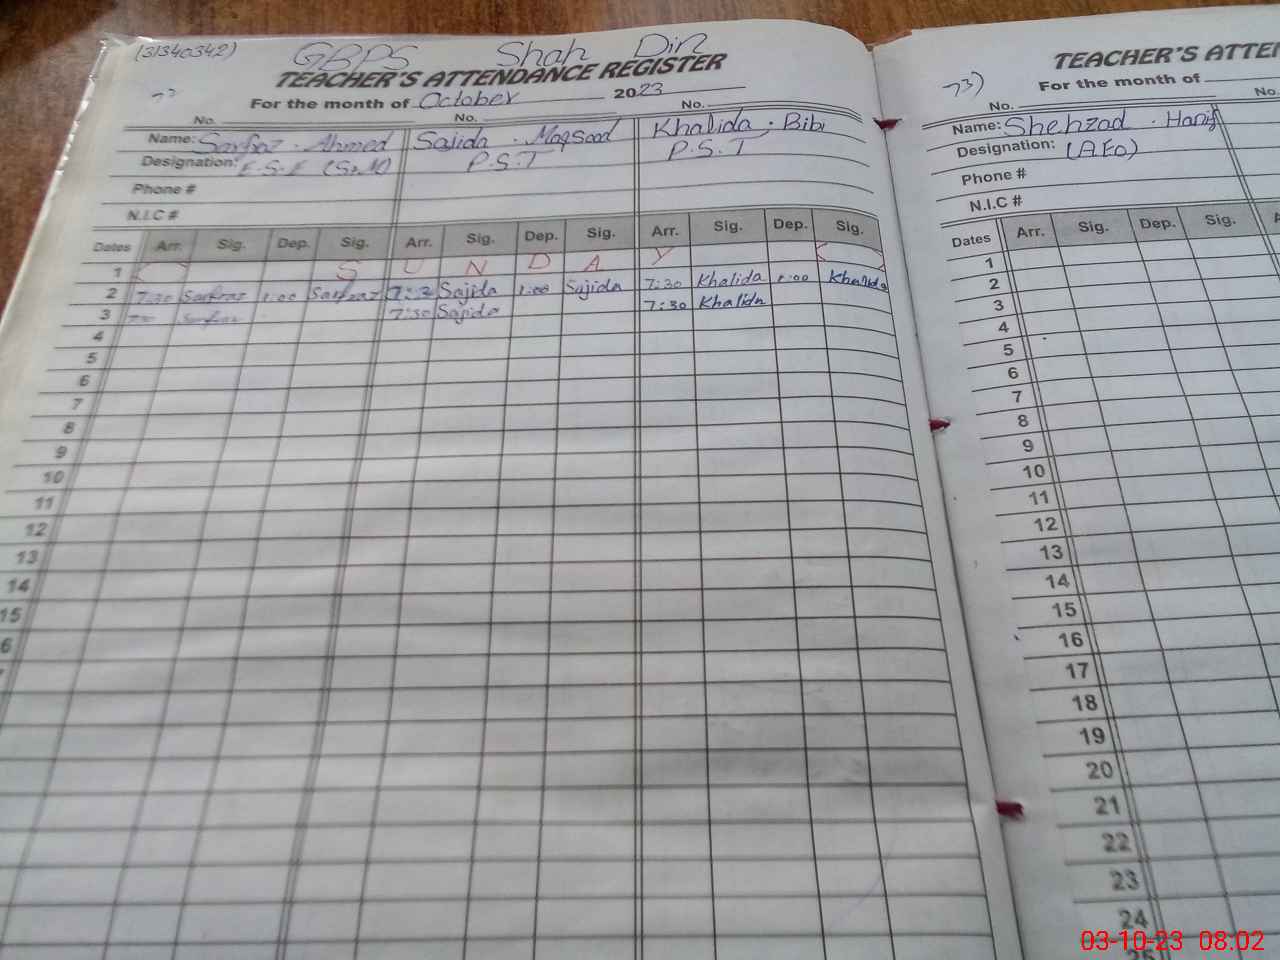 (31340342) GBPS Shah Din
TEACHER'S ATTENDANCE REGISTER
For the month of October 2023
No. No. No.
Name: Sarfraz Ahmed Sajida Maqsood Khalida Bibi
Designation: P.S.T P.S.T
Phone #
N.I.C #
Dates Arr. Sig. Dep. Sig. Arr. Sig. Dep. Sig. Arr. Sig. Dep. Sig.
1 S U N D A Y
2 7:30 Sarfraz 1:00 Sarfraz 7:30 Sajida 1:00 Sajida 7:30 Khalida 1:00 Khalida
3 Sarfraz 7:30 Sajida 7:30 Khalida
4
5
6
7
8
9
10
11
12
13
14
15
6
TEACHER'S ATTEN
73) For the month of
No. No.
Name: Shehzad Hanif
Designation: (AEO)
Phone #
N.I.C #
Dates Arr. Sig. Dep. Sig.
1
2
3
4
5
6
7
8
9
10
11
12
13
14
15
16
17
18
19
20
21
22
23
24
25
03-10-23 08:02